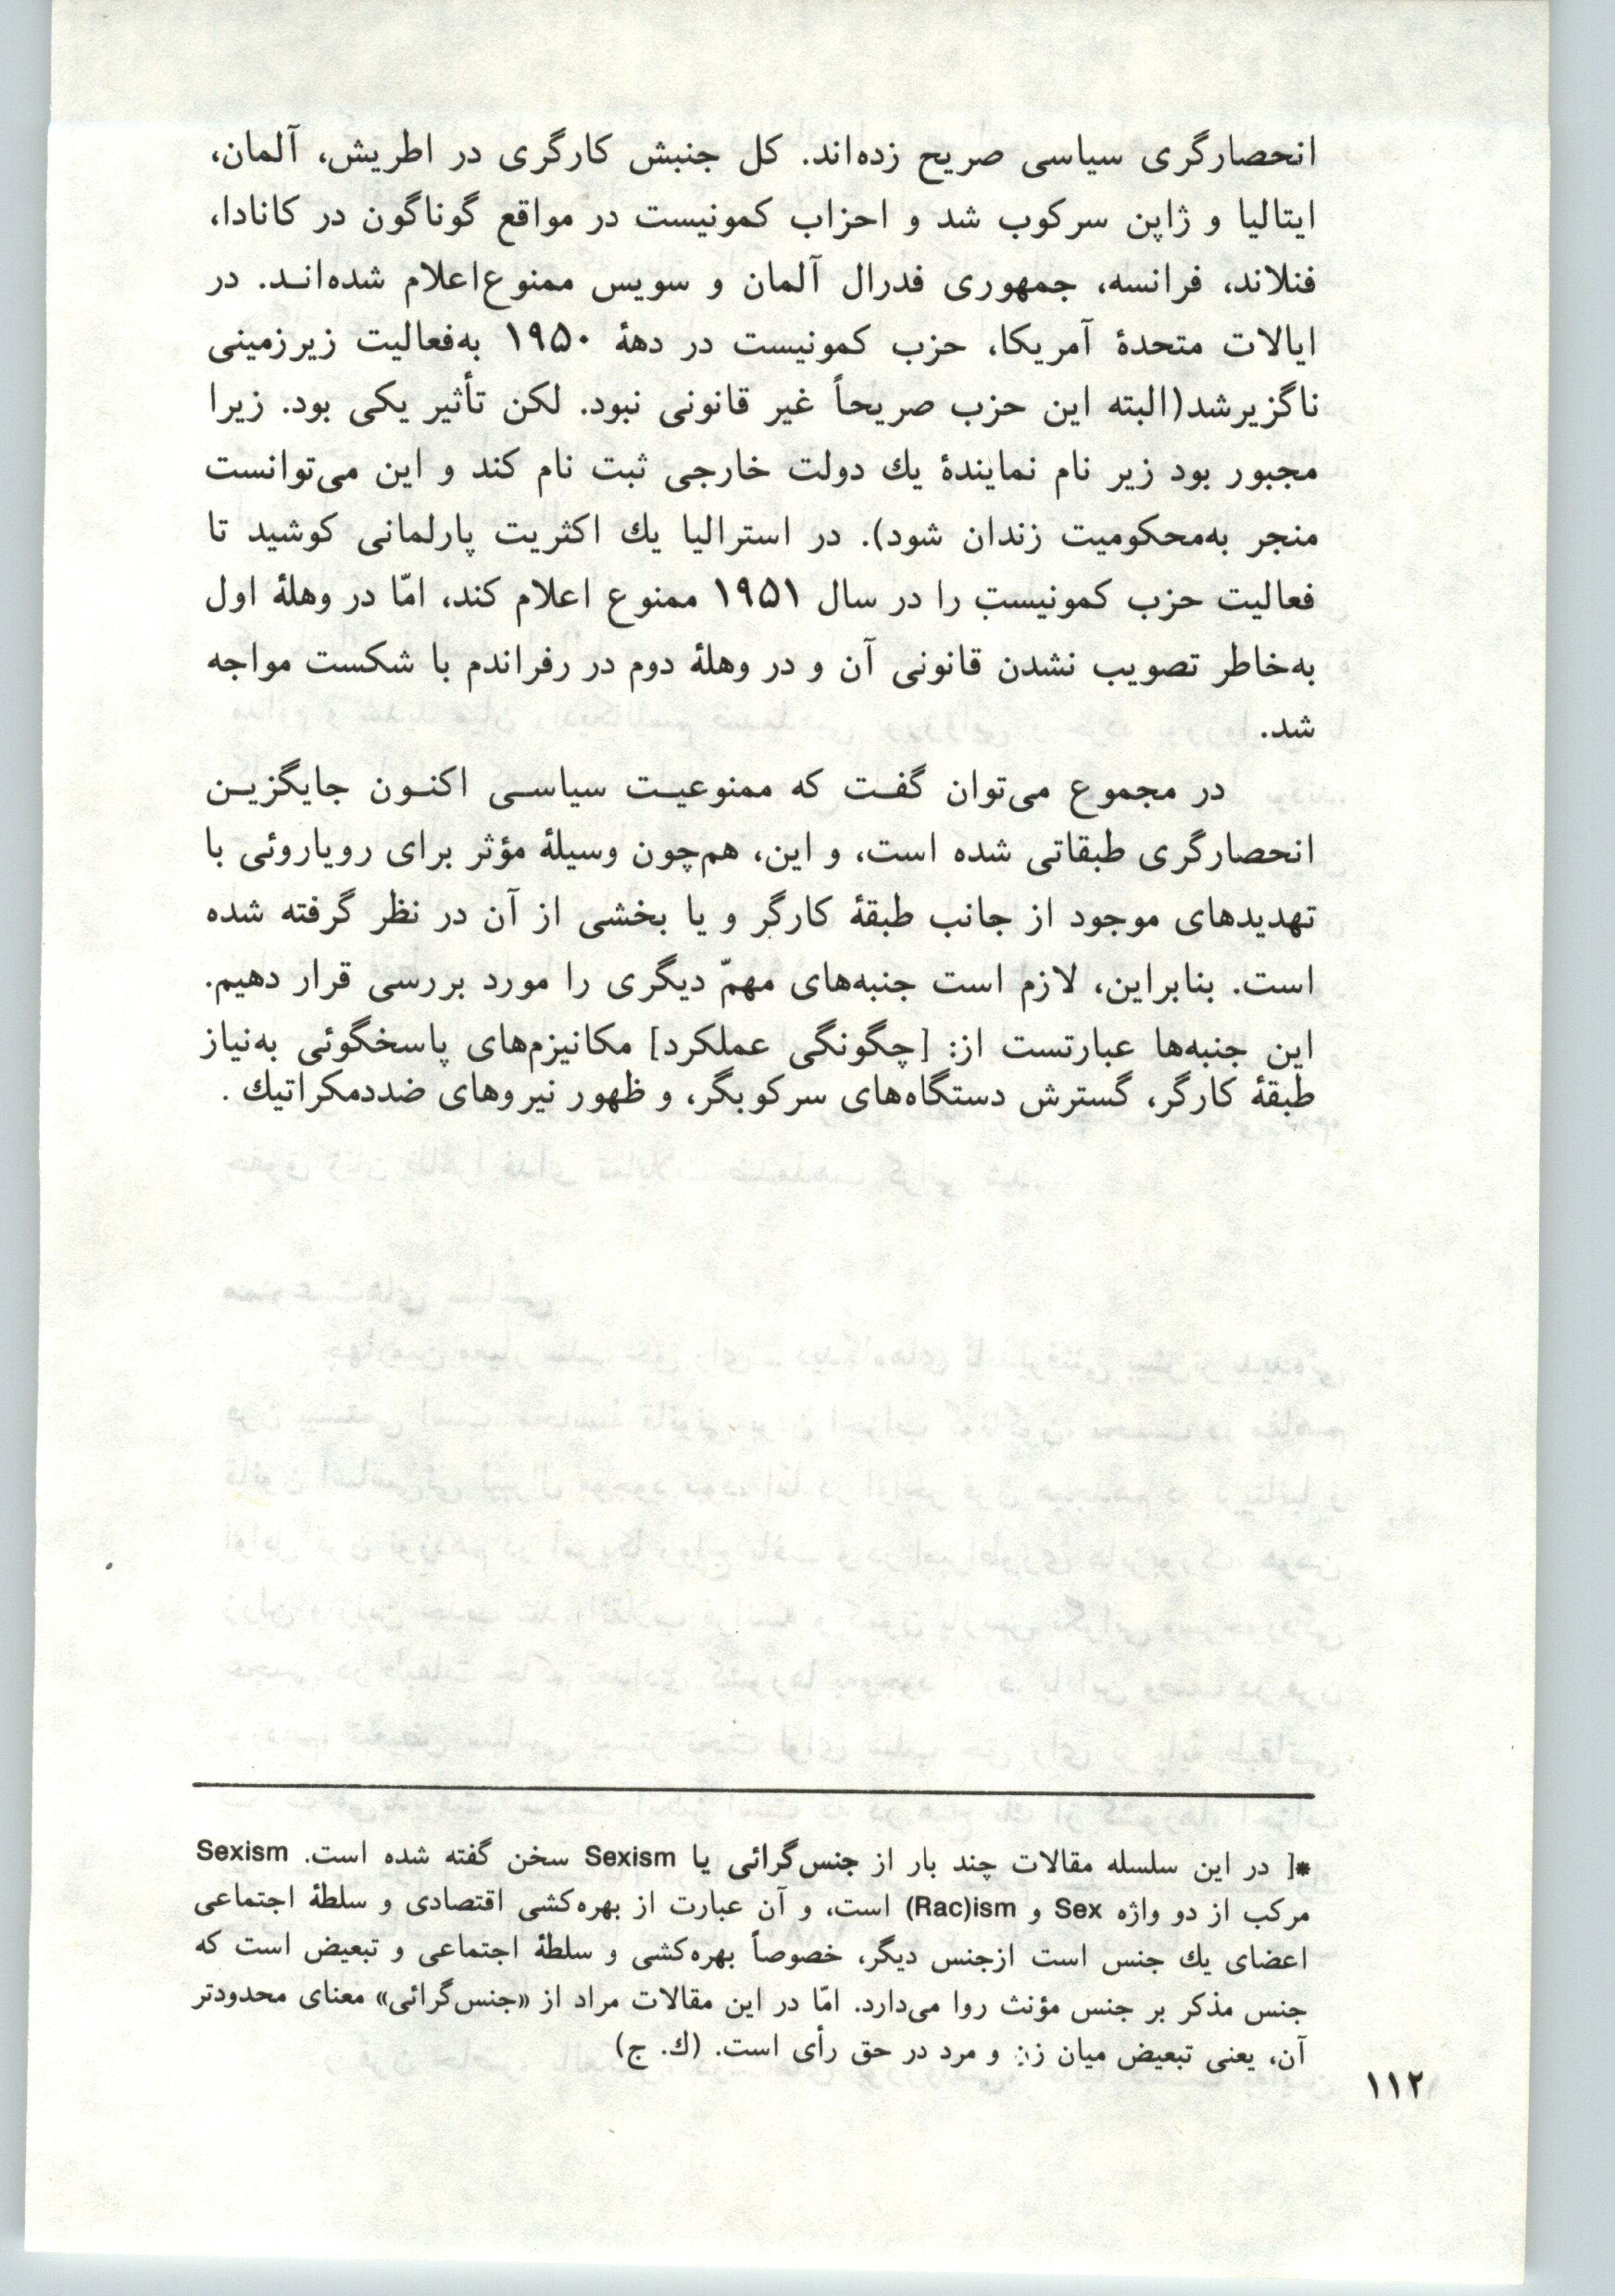 انحصارگری سیاسی صریح زده‌اند. کل جنبش کارگری در اطریش، آلمان،
ایتالیا و ژاپن سرکوب شد و احزاب کمونیست در مواقع گوناگون در کانادا،
فنلاند، فرانسه، جمهوری فدرال آلمان و سویس ممنوع‌اعلام شده‌انـد. در
ایالات متحدهٔ آمریکا، حزب کمونیست در دههٔ ۱۹۵۰ به‌فعالیت زیرزمینی
ناگزیرشد(البته این حزب صریحاً غیر قانونی نبود. لکن تأثیر یکی بود. زیرا
مجبور بود زیر نام نمایندهٔ یك دولت خارجی ثبت نام کند و این می‌توانست
منجر به‌محکومیت زندان شود). در استرالیا یك اکثریت پارلمانی کوشید تا
فعالیت حزب کمونیست را در سال ۱۹۵۱ ممنوع اعلام کند، امّا در وهلهٔ اول
به‌خاطر تصویب نشدن قانونی آن و در وهلهٔ دوم در رفراندم با شکست مواجه
شد.
در مجموع می‌توان گفـت که ممنوعیـت سیاسـی اکنـون جایگزیـن
انحصارگری طبقاتی شده است، و این، هم‌چون وسیلهٔ مؤثر برای رویاروئی با
تهدیدهای موجود از جانب طبقهٔ کارگر و یا بخشی از آن در نظر گرفته شده
است. بنابراین، لازم است جنبه‌های مهمّ دیگری را مورد بررسی قرار دهیم.
این جنبه‌ها عبارتست از: [چگونگی عملکرد] مکانیزم‌های پاسخگوئی به‌نیاز
طبقهٔ کارگر، گسترش دستگاه‌های سرکوبگر، و ظهور نیروهای ضددمکراتیك .
*[ در این سلسله مقالات چند بار از جنس‌گرائی یا Sexism سخن گفته شده است. Sexism
مرکب از دو واژه Sex و Rac)ism) است، و آن عبارت از بهره‌کشی اقتصادی و سلطهٔ اجتماعی
اعضای یك جنس است ازجنس دیگر، خصوصاً بهره‌کشی و سلطهٔ اجتماعی و تبعیض است که
جنس مذکر بر جنس مؤنث روا می‌دارد. امّا در این مقالات مراد از «جنس‌گرائی» معنای محدودتر
آن، یعنی تبعیض میان زن و مرد در حق رأی است. (ك. ج)
۱۱۲